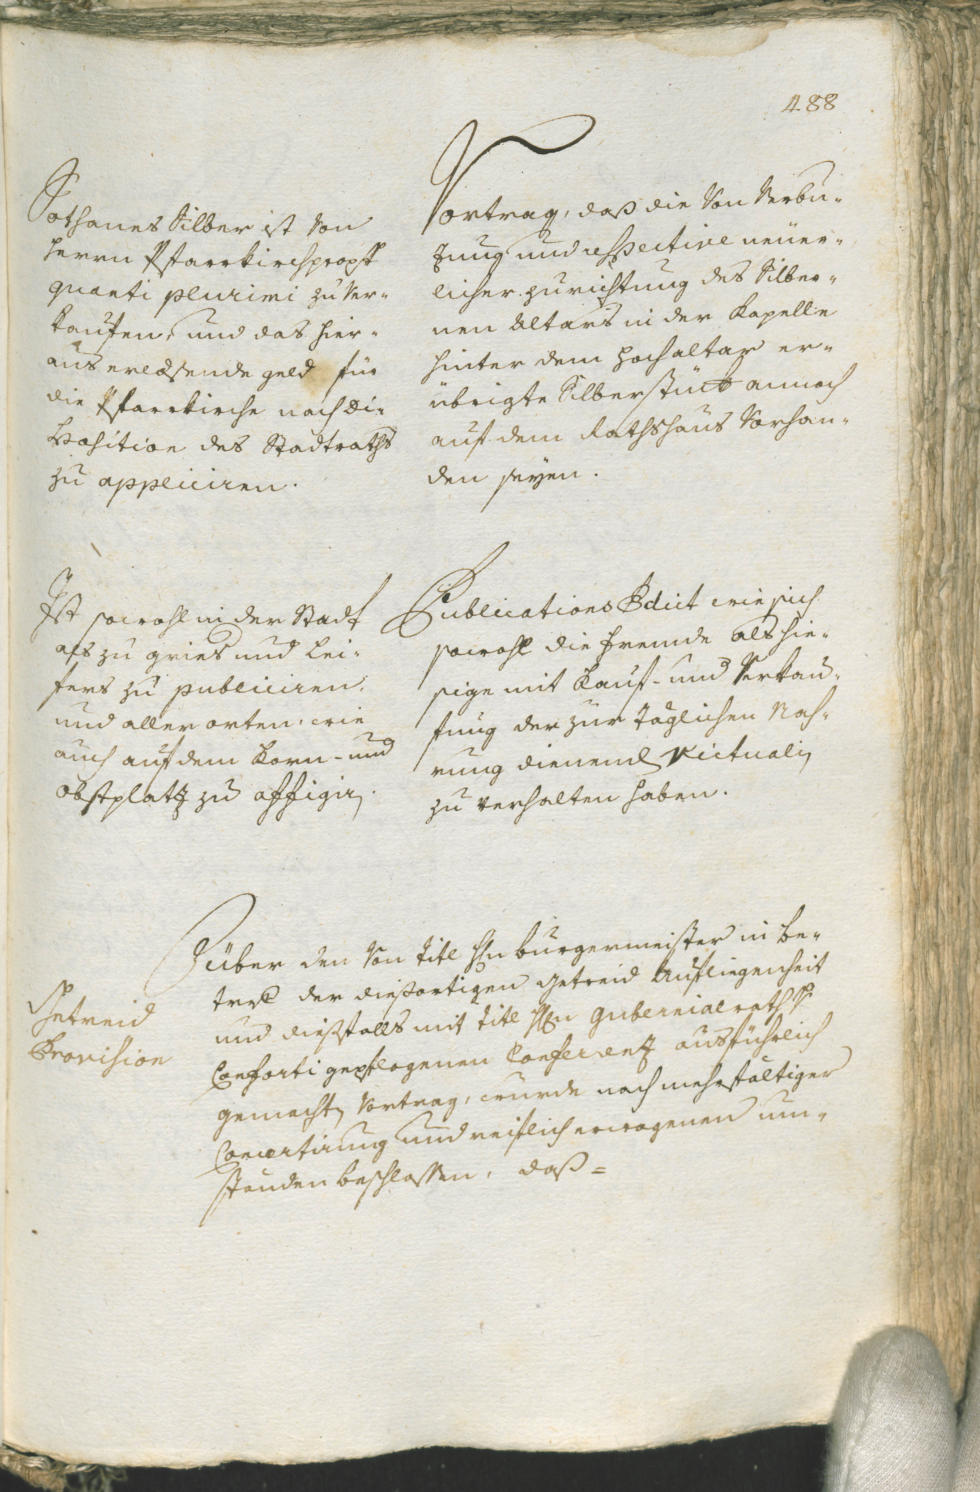 488
Sothanes Silber ist von
Herrn Pfarrkirchpropst
quanti plurimi zu ver-
kaufen, und das hier-
aus erlösende geld für
die Pfarrkirche nach di-
sposition des Stadtraths
zu appliciren.
Vortrag, daß die von Verbu-
zung und respective neuer-
licher zurichtung des Silber-
nen Altars in der Kapelle
hinter dem Hochaltar er-
übrigte Silberstück annoch
auf dem Rathshaus vorhan-
den seyen.
Ist sowohl in der Stadt
als zu gries und Lei-
fers zu publiciren,
und aller orten, wie
auch auf dem Korn- und
Obstplatz zu affigirn.
Publications Edict wie sich
sowohl die fremde als hie-
sige mit Kauf- und Verkau-
fung der zur täglichen Nah-
rung dienend Victualin
zu verhalten haben.
Getreid
Provision
Über den von Titl Hrn burgermeister in be-
tref der diesortigen getreid Aufliegenheit
und diesfalls mit Titl Hrn gubernialrath
Conforti gepflogenen Conferenz ausführlich
gemachtn Vortrag, wurde nach mehrfältiger
Concertirung und reiflich erwogenen um-
ständen beschlossen, daß=